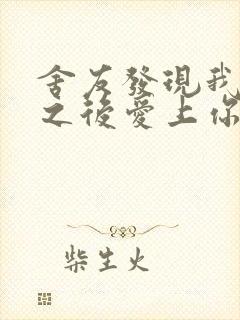 舍友發現我
之後愛上你
柴生火